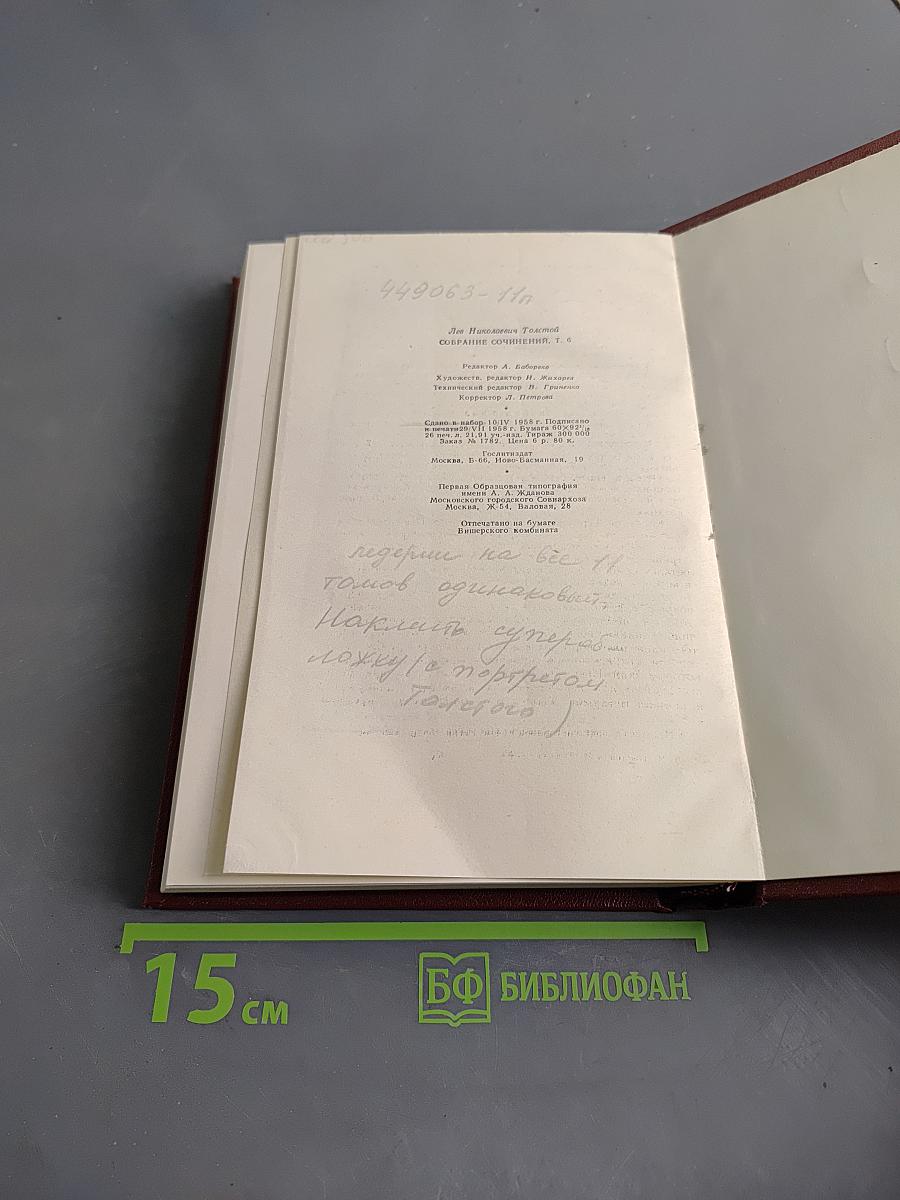 449063-11п
Лев Николаевич Толстой
СОБРАНИЕ СОЧИНЕНИЙ, Т. 6
Редактор А. Бабореко
Художеств. редактор Н. Жихарев
Технический редактор В. Гриненко
Корректор Л. Петрова
Сдано в набор 10/IV 1958 г. Подписано
к печати 29/VII 1958 г. Бумага 60×92¹/₁₆
26 печ. л. 21,91 уч.-изд. Тираж 300 000
Заказ № 1782. Цена 6 р. 80 к.
Гослитиздат
Москва, Б-66, Ново-Басманная, 19
Первая Образцовая типография
имени А. А. Жданова
Московского городского Совнархоза
Москва, Ж-54, Валовая, 28
Отпечатано на бумаге
Вишерского комбината
ледерин на все 11
томов одинаковый,
Наклеить суперобложку
/с портретом
Толстого)
15 см
БФ БИБЛИОФАН